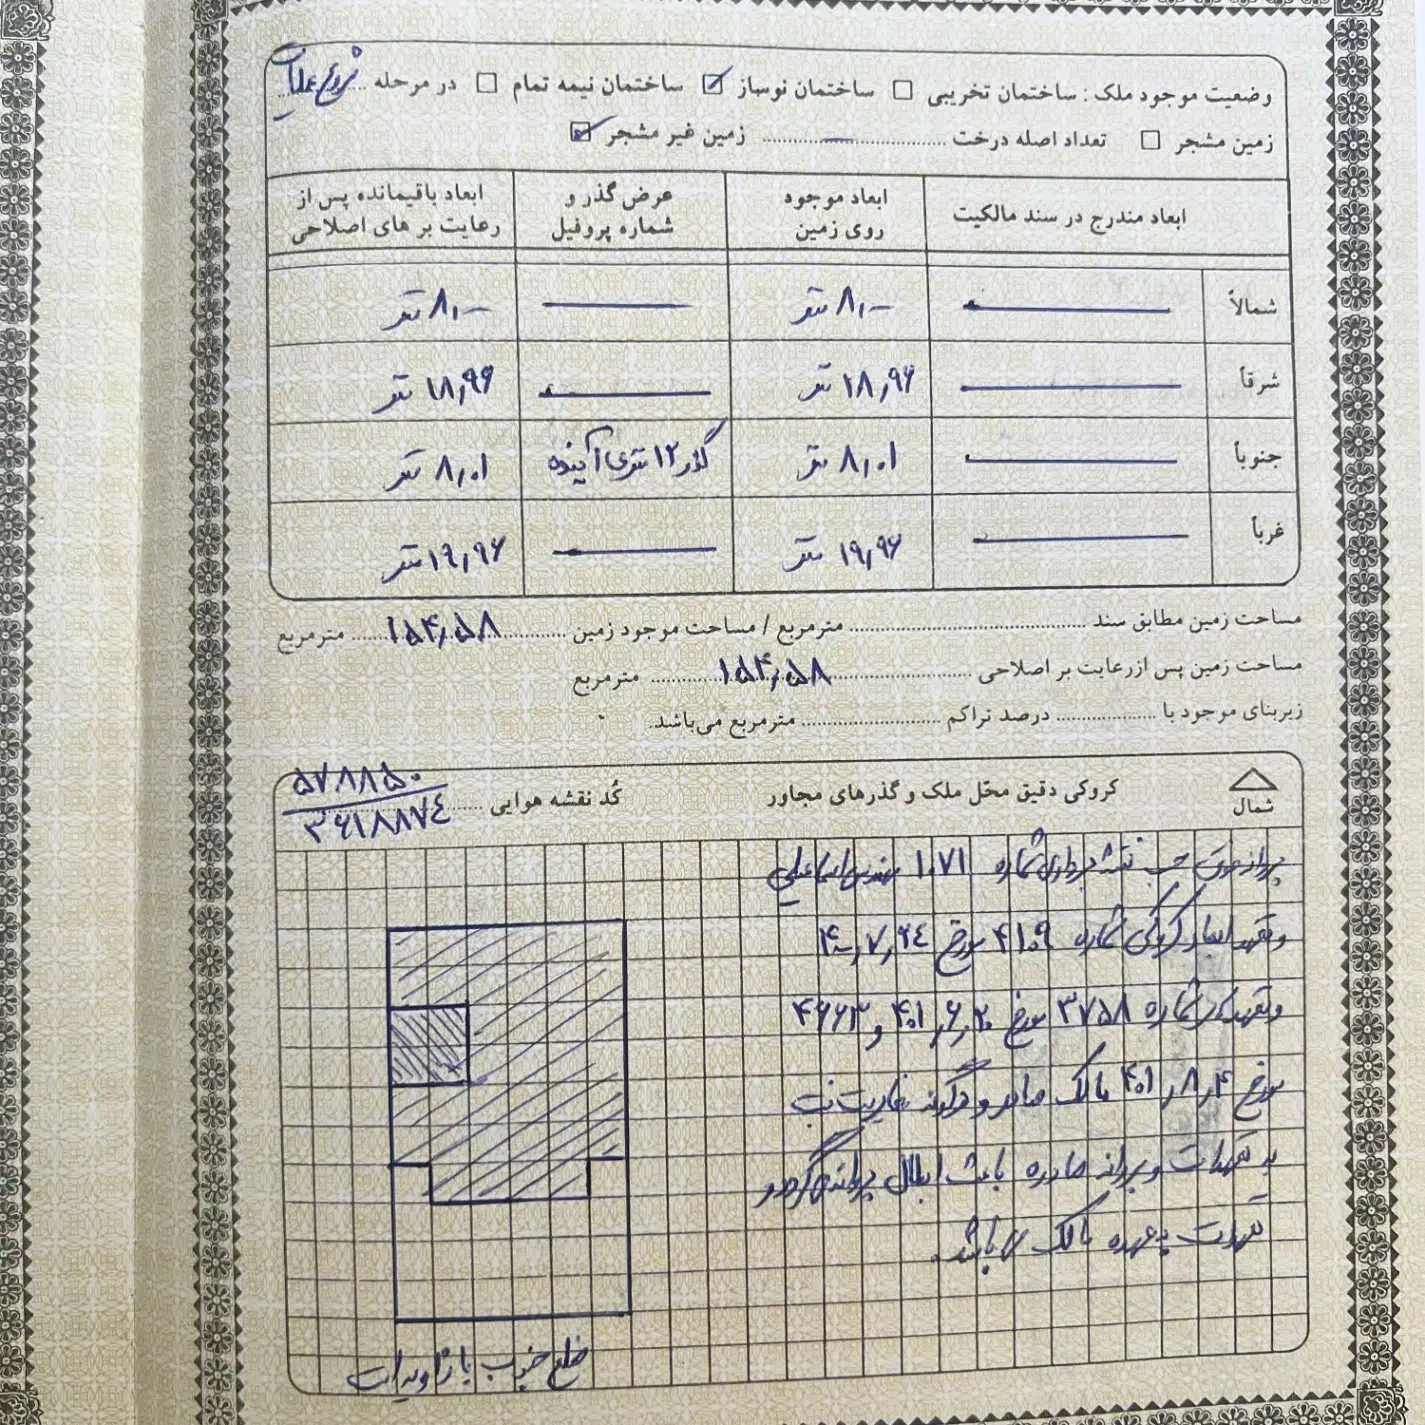 وضعیت موجود ملک : ساختمان تخریبی ساختمان نوساز ساختمان نیمه تمام در مرحله شروع عملیات
زمین مشجر تعداد اصله درخت — زمین غیر مشجر
ابعاد مندرج در سند مالکیت ابعاد موجود روی زمین عرض گذر و شماره پروفیل ابعاد باقیمانده پس از رعایت بر های اصلاحی
شمالاً — ۸٫۰۰ متر — ۸٫۰۰ متر
شرقاً — ۱۸٫۹۶ متر — ۱۸٫۹۶ متر
جنوباً — ۸٫۰۱ متر گذر ۱۲ متری آینده ۸٫۰۱ متر
غرباً — ۱۹٫۹۶ متر — ۱۹٫۹۶ متر
مساحت زمین مطابق سند مترمربع / مساحت موجود زمین ۱۵۴٫۵۸ مترمربع
مساحت زمین پس از رعایت بر اصلاحی ۱۵۴٫۵۸ مترمربع
زیربنای موجود با درصد تراکم مترمربع می‌باشد.
شمال
کروکی دقیق محّل ملک و گذرهای مجاور
کُد نقشه هوایی ۵۷۸۸۵۰
۳۶۱۸۸۷٤
پروانه فوق حسب نقشه برداری شماره ۱۰۷۱ مهندس اسماعیلی
و تعهد ابعاد کروکی شماره ۴۱۰۹ مورخ ۴۰۰٫۷٫۲٤
و تعهد شماره ۳۷۵۸ مورخ ۴۰۱٫۶٫۲۰ و ۴۶۶۳
مورخ ۴۰۱٫۸٫۴ مالک صادر و هرگونه مغایرت نسبت
به تعهدات و پروانه صادره باعث ابطال پروانه می گردد و
تعهدات به عهده مالک می باشد.
ضلع جنوب با زاویه است